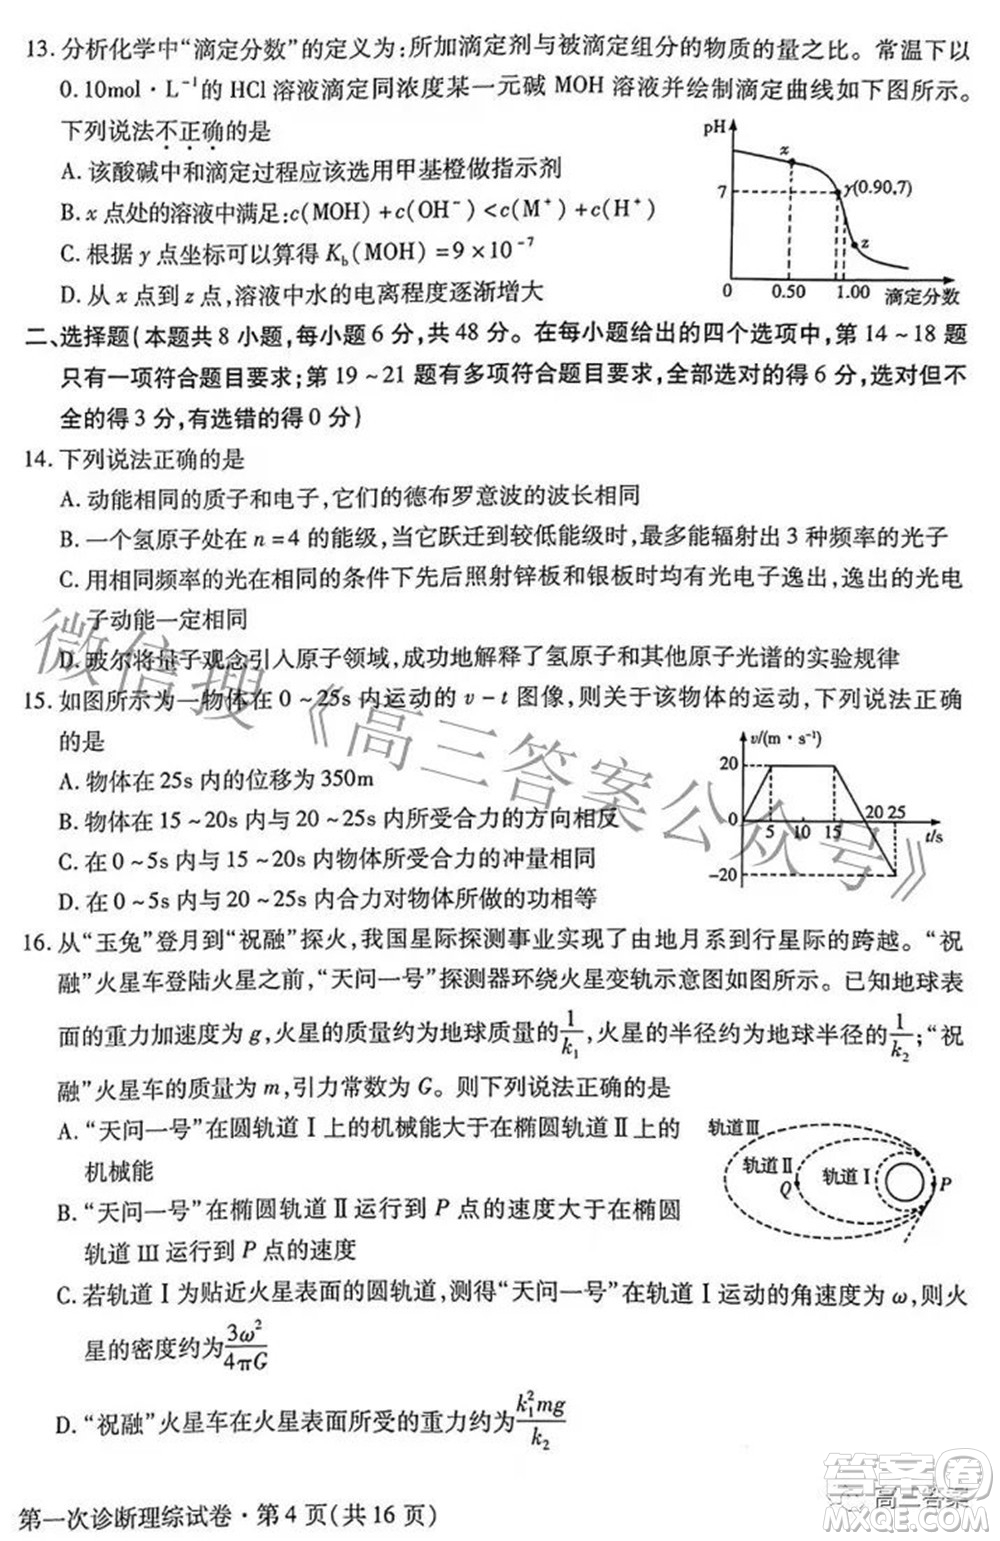 13. 分析化学中“滴定分数”的定义为:所加滴定剂与被滴定组分的物质的量之比。常温下以
0.10mol·L⁻¹的 HCl 溶液滴定同浓度某一元碱 MOH 溶液并绘制滴定曲线如下图所示。
下列说法不正确的是
A. 该酸碱中和滴定过程应该选用甲基橙做指示剂
B. x 点处的溶液中满足:c(MOH)+c(OH⁻)<c(M⁺)+c(H⁺)
C. 根据 y 点坐标可以算得 K_b(MOH)=9×10⁻⁷
D. 从 x 点到 z 点,溶液中水的电离程度逐渐增大
pH
x
7
y(0.90,7)
z
0 0.50 1.00 滴定分数
二、选择题(本题共 8 小题,每小题 6 分,共 48 分。在每小题给出的四个选项中,第 14~18 题
只有一项符合题目要求;第 19~21 题有多项符合题目要求,全部选对的得 6 分,选对但不
全的得 3 分,有选错的得 0 分)
14. 下列说法正确的是
A. 动能相同的质子和电子,它们的德布罗意波的波长相同
B. 一个氢原子处在 n=4 的能级,当它跃迁到较低能级时,最多可辐射出 3 种频率的光子
C. 用相同频率的光在相同的条件下先后照射锌板和银板时均有光电子逸出,逸出的光电
子动能一定相同
D. 玻尔将量子观念引入原子领域,成功地解释了氢原子和其他原子光谱的实验规律
15. 如图所示为一物体在 0~25s 内运动的 v-t 图像,则关于该物体的运动,下列说法正确
的是
A. 物体在 25s 内的位移为 350m
B. 物体在 15~20s 内与 20~25s 内所受合力的方向相反
C. 在 0~5s 内与 15~20s 内物体所受合力的冲量相同
D. 在 0~5s 内与 20~25s 内合力对物体所做的功相等
v/(m·s⁻¹)
20
0 5 10 15 20 25
t/s
-20
16. 从“玉兔”登月到“祝融”探火,我国星际探测事业实现了由地月系到行星际的跨越。“祝
融”火星车登陆火星之前,“天问一号”探测器环绕火星变轨示意图如图所示。已知地球表
面的重力加速度为 g,火星的质量约为地球质量的1/k₁,火星的半径约为地球半径的1/k₂;“祝
融”火星车的质量为 m,引力常数为 G。则下列说法正确的是
A. “天问一号”在圆轨道Ⅰ上的机械能大于在椭圆轨道Ⅱ上的
机械能
B. “天问一号”在椭圆轨道Ⅱ运行到 P 点的速度大于在椭圆
轨道Ⅲ运行到 P 点的速度
轨道Ⅲ
轨道Ⅱ 轨道Ⅰ
Q P
C. 若轨道Ⅰ为贴近火星表面的圆轨道,测得“天问一号”在轨道Ⅰ运动的角速度为 ω,则火
星的密度约为3ω²/4πG
D. “祝融”火星车在火星表面所受的重力约为k₁²mg/k₂
第一次诊断理综试卷·第 4 页(共 16 页)
微信搜《高三答案公众号》
答案圈
高三答案
MXQE.COM